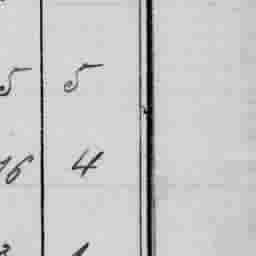 5 5
16 4